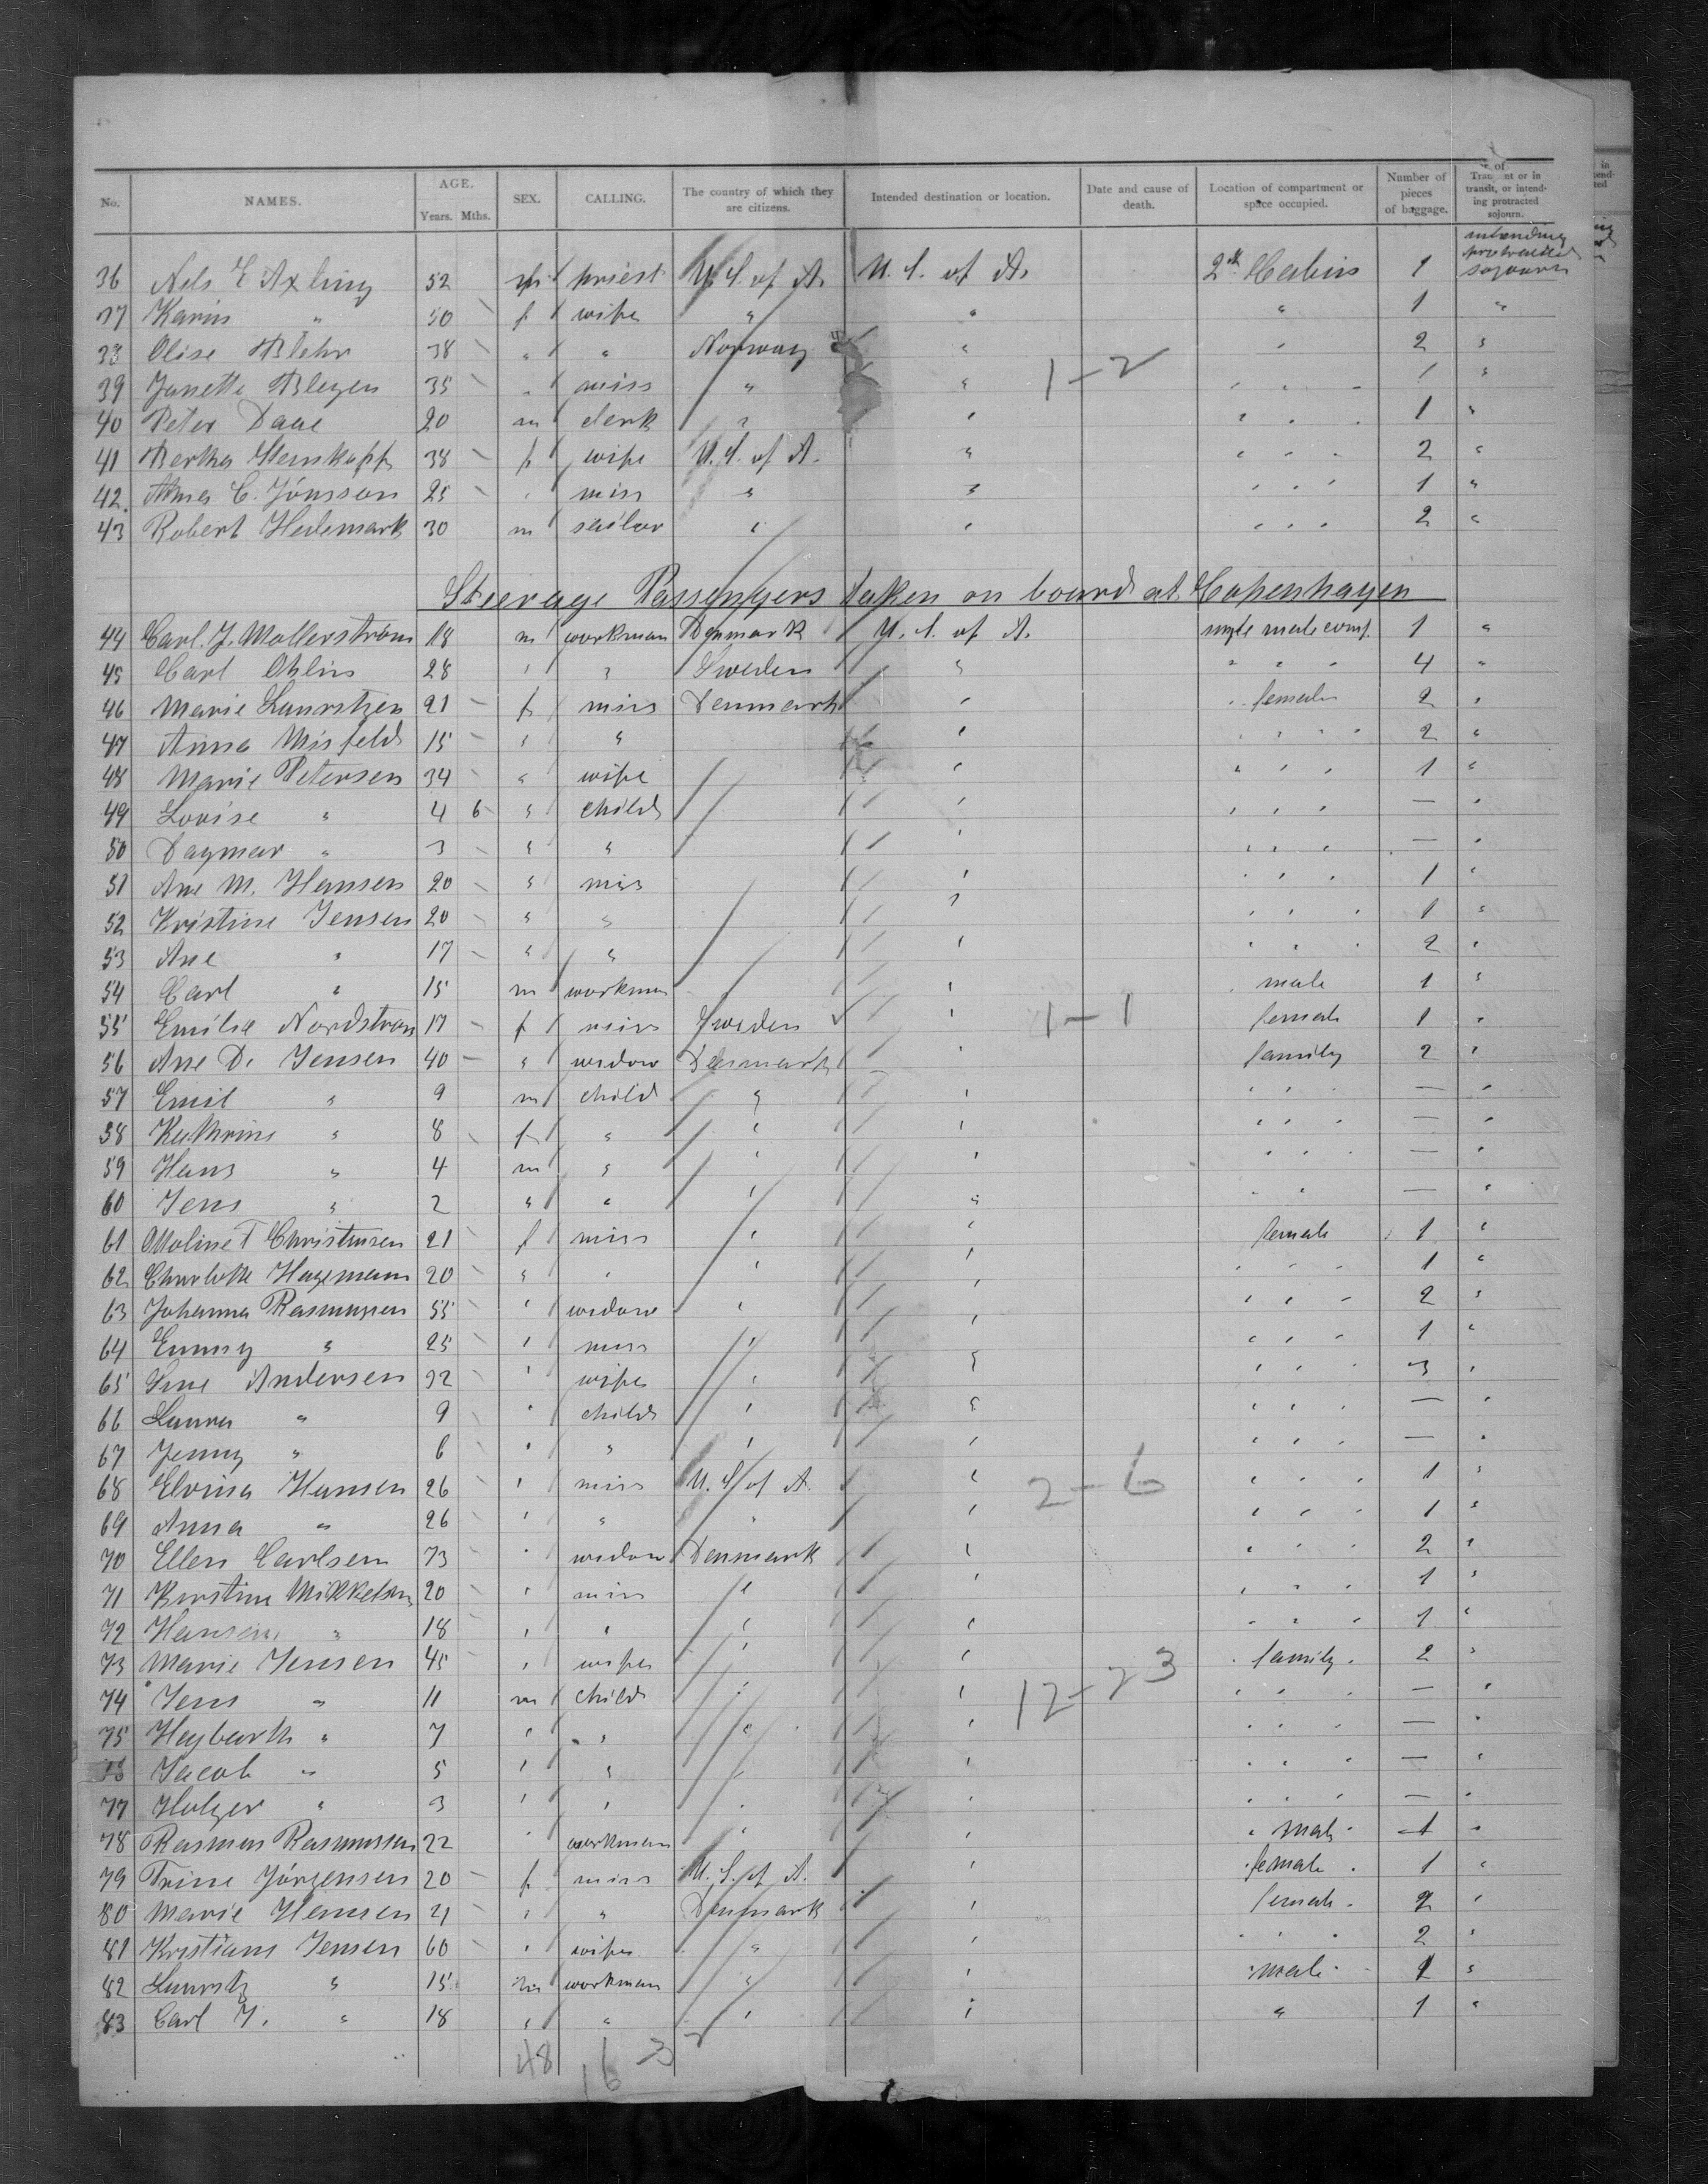 No. NAMES. AGE. Years. Mths. SEX. CALLING. The country of which they are citizens. Intended destination or location. Date and cause of death. Location of compartment or space occupied. Number of pieces of baggage. Transient or in transit, or intending protracted sojourn.
36 Nels E Axling 52 m priest U.S. of A. U.S. of A. 2nd Cabin 1 intending protracted sojourn
37 Karin " 50 f wife " " " 1 "
38 Olise Blehr 38 " " Norway " " 2 "
1-2
39 Janette Blegen 35 " miss " " " " " 1 "
40 Peter Daae 20 m clerk " " " " " 1 "
41 Bertha Stenkopf 38 f wife U.S. of A. " " " " 2 "
42 Alma C. Jönsson 25 " miss " " " " " 1 "
43 Robert Hedemark 30 m sailor " " " " " 2 "
Steerage Passengers taken on board at Copenhagen
44 Carl. J. Mollerström 18 m workman Denmark U.S. of A. single male comp. 1 "
45 Carl Ohlin 28 " " Sweden " " " " 4 "
46 Marie Lauritzen 21 f miss Denmark " " female 2 "
47 Anna Misfeld 15 " " " " " " 2 "
48 Marie Petersen 34 " wife " " " " 1 "
49 Lovise " 4 6 " child " " " " — "
50 Dagmar " 3 " " " " " " — "
51 Ane M. Hansen 20 " miss " " " " 1 "
52 Kristine Jensen 20 " " " " " " 1 "
53 Ane " 17 " " " " " " 2 "
54 Carl " 15 m workman " " male 1 "
55 Emilie Nordstrom 17 f miss Sweden " female 1 "
1-1
56 Ane D. Jensen 40 " widow Denmark " family 2 "
57 Emil " 9 m child " " " " " — "
58 Kathrine " 8 f " " " " " " — "
59 Hans " 4 m " " " " " " — "
60 Jens " 2 " " " " " " — "
61 Moline T Christensen 21 f miss " " female 1 "
62 Charlotte Hagemann 20 " " " " " " " 1 "
63 Johanna Rasmussen 55 " widow " " " " " 2 "
64 Emmy " 25 " miss " " " " " 1 "
65 Sine Andersen 32 " wife " " " " " 3 "
66 Laura " 9 " child " " " " " — "
67 Jenny " 6 " " " " " " " — "
68 Elvina Hansen 26 " miss U.S. of A. " " " " 1 "
2-6
69 Anna " 26 " " " " " " " 1 "
70 Ellen Carlsen 73 " widow Denmark " " " " 2 "
71 Kirstine Mikkelsen 20 " miss " " " " " 1 "
72 Hansine " 18 " " " " " " " 1 "
73 Marie Jensen 45 " wife " " " family " 2 "
12-23
74 Jens " 11 m child " " " " " — "
75 Heybarth " 7 " " " " " " " — "
76 Jacob " 5 " " " " " " " — "
77 Holger " 3 " " " " " " " — "
78 Rasmus Rasmussen 22 " workman " " " male " 1 "
79 Trine Jörgensen 20 f miss U.S. of A. " " female " 1 "
80 Marie Hansen 21 " " Denmark " female " 2 "
81 Kristiane Jensen 60 " wife " " " " " 2 "
82 Lauritz " 15 m workman " " " male " 1 "
83 Carl J. " 18 " " " " " 1 "
48 16-32